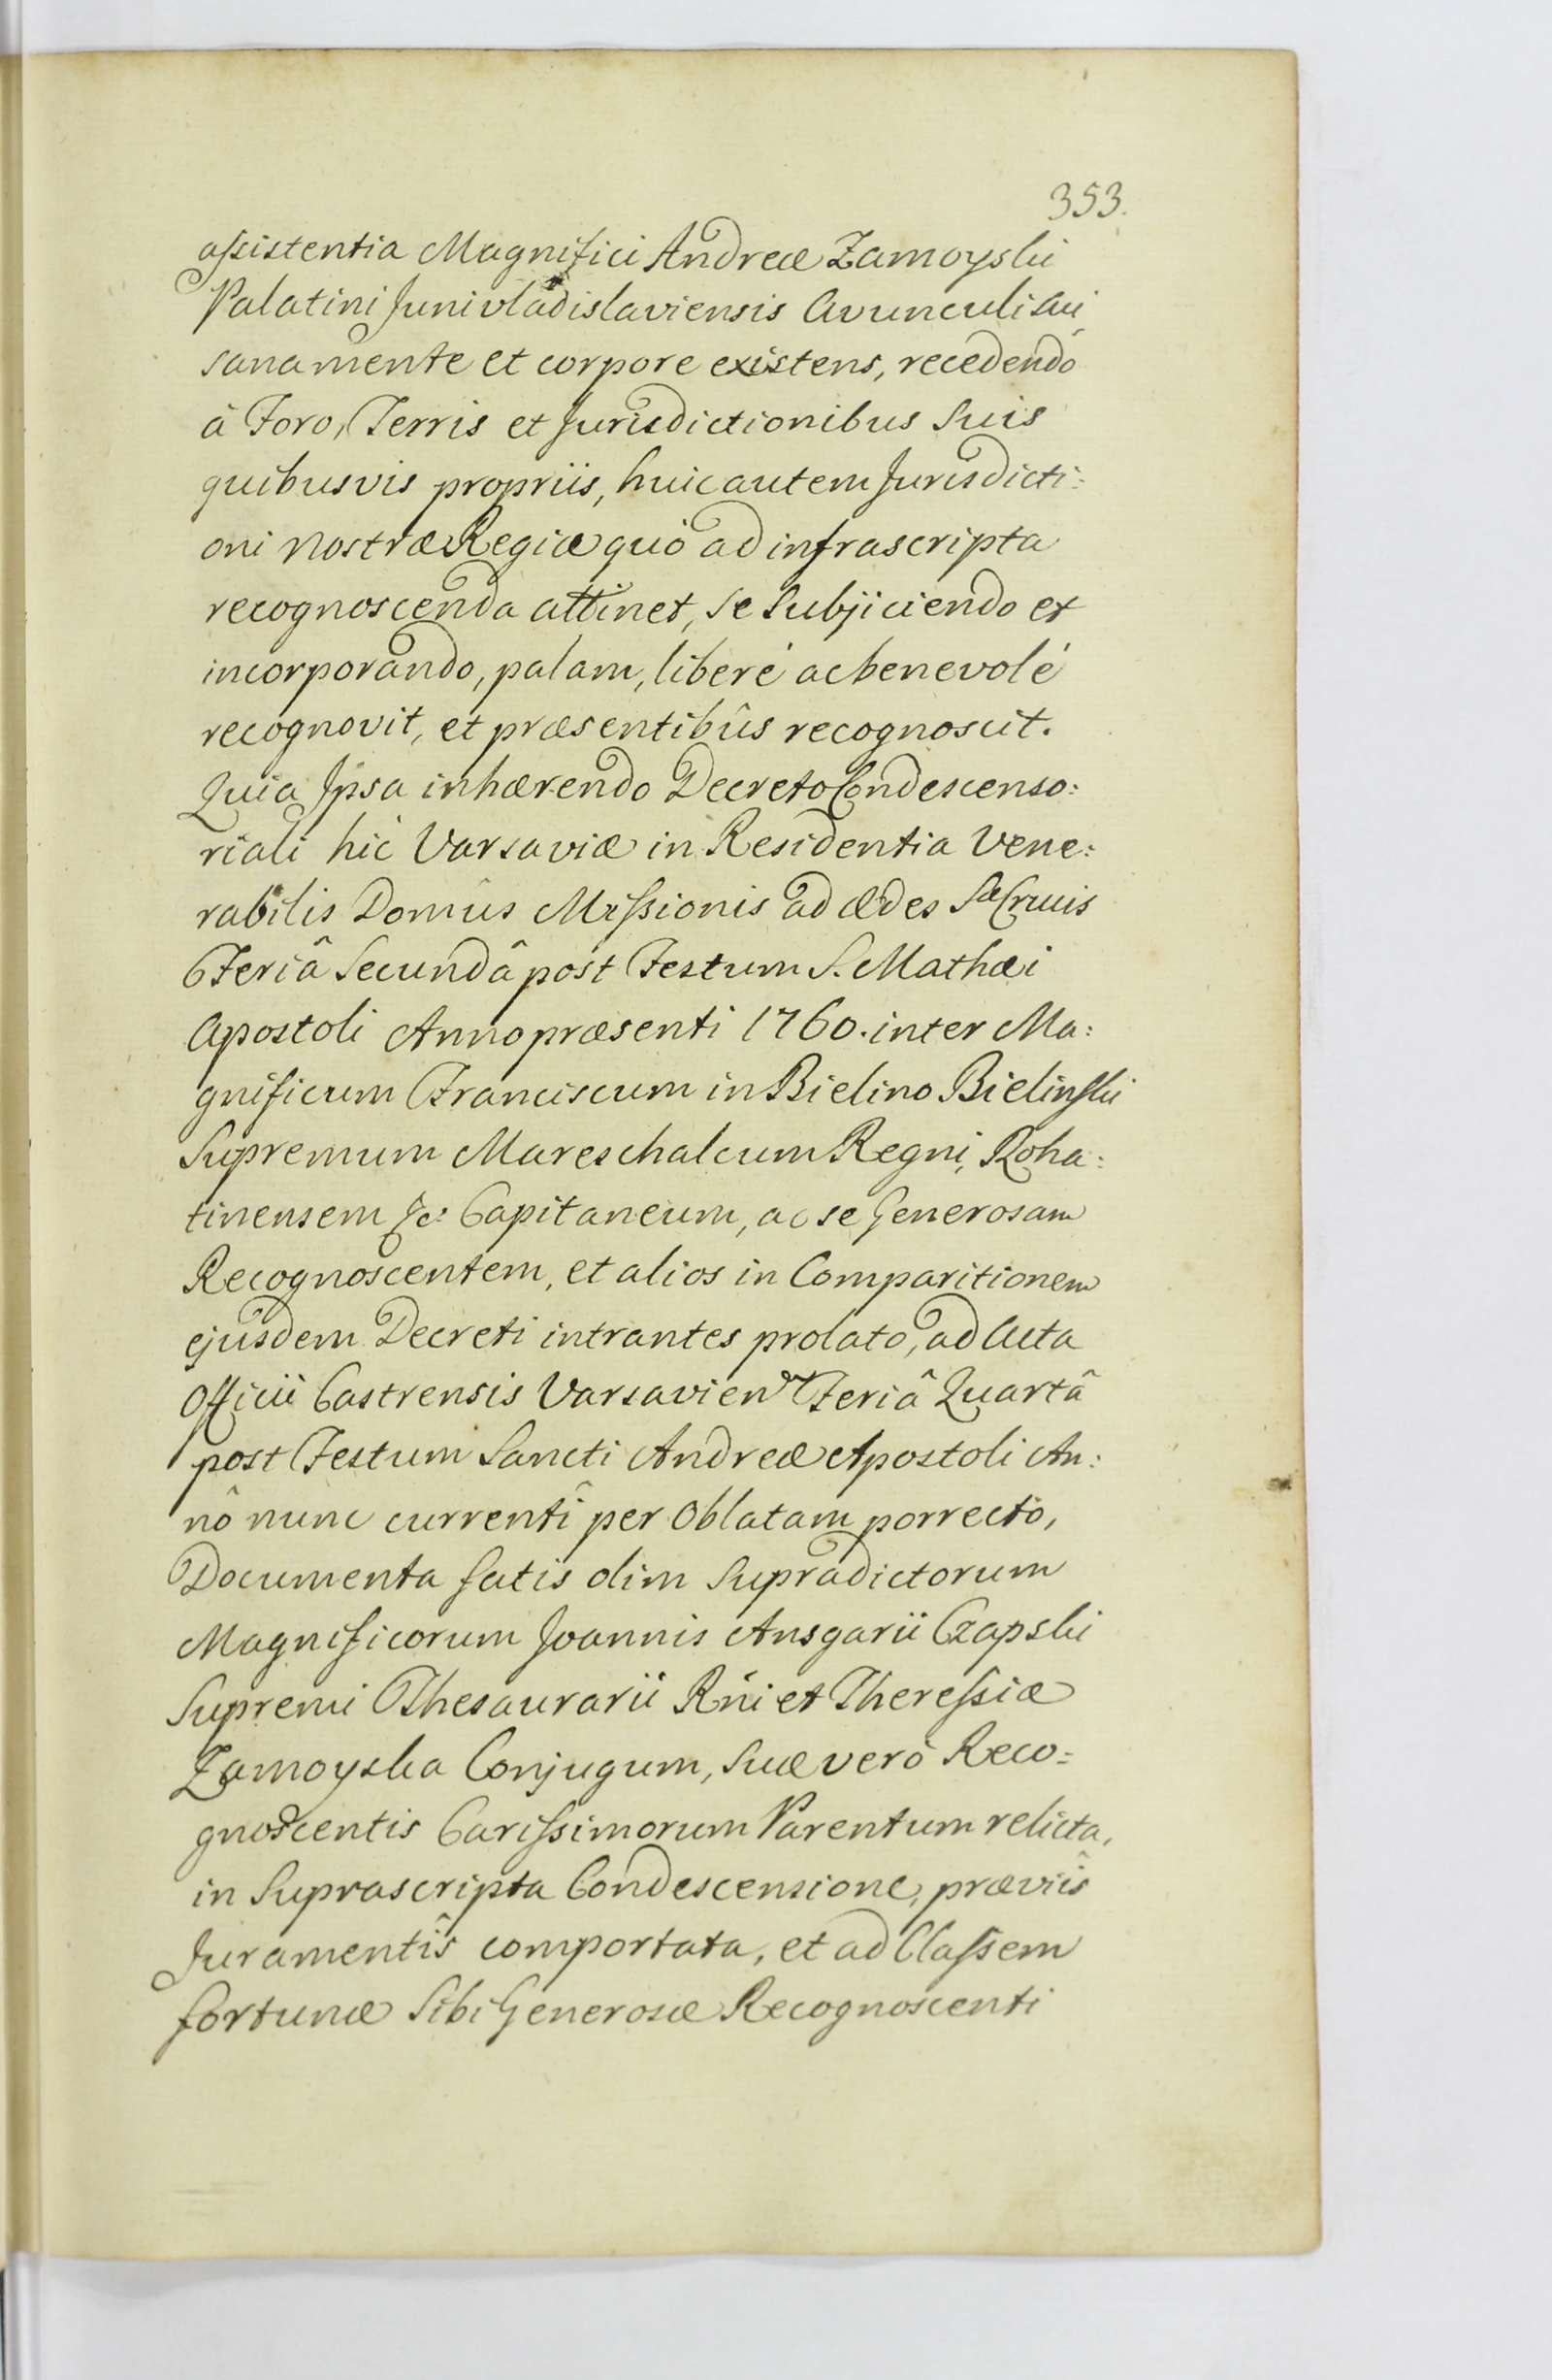 353.
assistentia Magnifici Andreæ Zamoyski
Palatini Junivladislaviensis Avunculi sui
sana mente et corpore existens, recedendo
à Foro, Terris et Jurisdictionibus suis
quibusvis propriis, huic autem Jurisdicti:
oni nostræ Regiæ quò ad infrascripta
recognoscenda attinet, se subjiciendo et
incorporando, palam, liberé ac benevolé
recognovit, et præsentibûs recognoscit.
Quia Ipsa inhærendo Decreto Condescenso:
riali hìc Varsaviæ in Residentia Vene:
rabilis Domûs Missionis ad ædes Sæ Crucis
Feriâ Secundâ post Festum S. Mathæi
Apostoli Anno præsenti 1760. inter Ma:
gnificum Franciscum in Bielino Bielinski
Supremum Mareschalcum Regni, Roha:
tinensem &c: Capitaneum, ac se Generosam
Recognoscentem, et alios in Comparitionem
ejusdem Decreti intrantes prolato, ad Acta
Officii Castrensis Varsavien Feriâ Quartâ
post Festum Sancti Andreæ Apostoli An:
nô nunc currentî per Oblatam porrecto,
Documenta fatis olim supradictorum
Magnificorum Joannis Ansgarii Czapski
Supremi Thesaurarii Rñi et Theressiæ
Zamoyska Conjugum, suæ verò Reco:
gnoscentis Carissimorum Parentum relicta,
in suprascripta Condescensione, præviîs
Juramentîs comportata, et ad Classem
fortunæ sibi Generosæ Recognoscenti